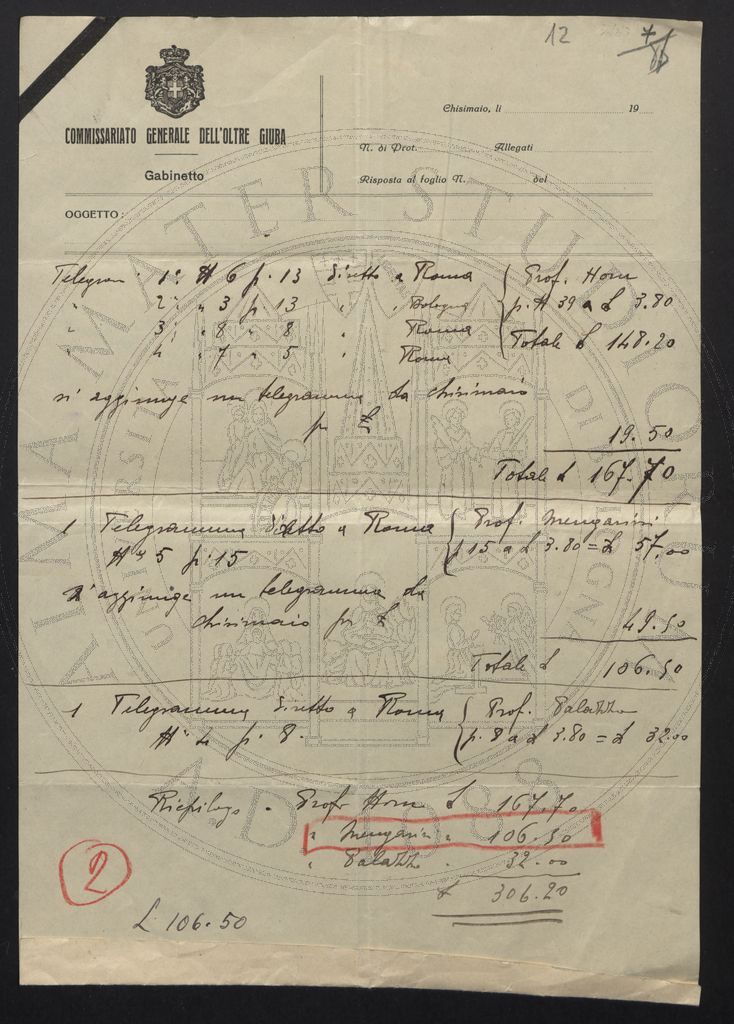 12
COMMISSARIATO GENERALE DELL'OLTRE GIUBA
Gabinetto
Chisimaio, li 19
N. di Prot. Allegati
Risposta al foglio N. del
OGGETTO:
Telegram: 1° N 6 p. 13 diretto a Roma
" 2° " 3 p. 13 " " Bologna
" 3° " 8 " 8 " Roma
" 4 " 7 " 5 " Roma
Prof. Horn
p. N 39 a £ 3.80
Totale £ 148.20
si aggiunge un telegramma da chisimaio
per £ 19.50
Totale £ 167.70
1 Telegramma diretto a Roma
N° 5 p. 15
Prof. Mengarini
p 15 a £ 3.80 = £ 57,00
si aggiunge un telegramma da
chisimaio per £ 49.50
Totale £ 106.50
1 Telegramma diretto a Roma
N° 4 p. 8.
Prof. Palazzo
p. 8 a £ 3.80 = £ 32.00
Riepilogo - Profr Horn £ 167.70
" Mengarini " 106.50
" Palazzo " 32.00
£ 306.20
2
£ 106.50
ALMA MATER STUDIORUM
UNIVERSITÀ DI BOLOGNA
A.D. 1088